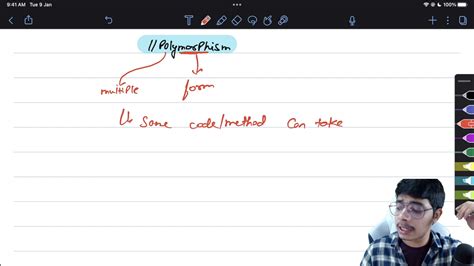 9:41 AM Tue 9 Jan
100%
//Polymorphism
multiple form
Same code/method can take